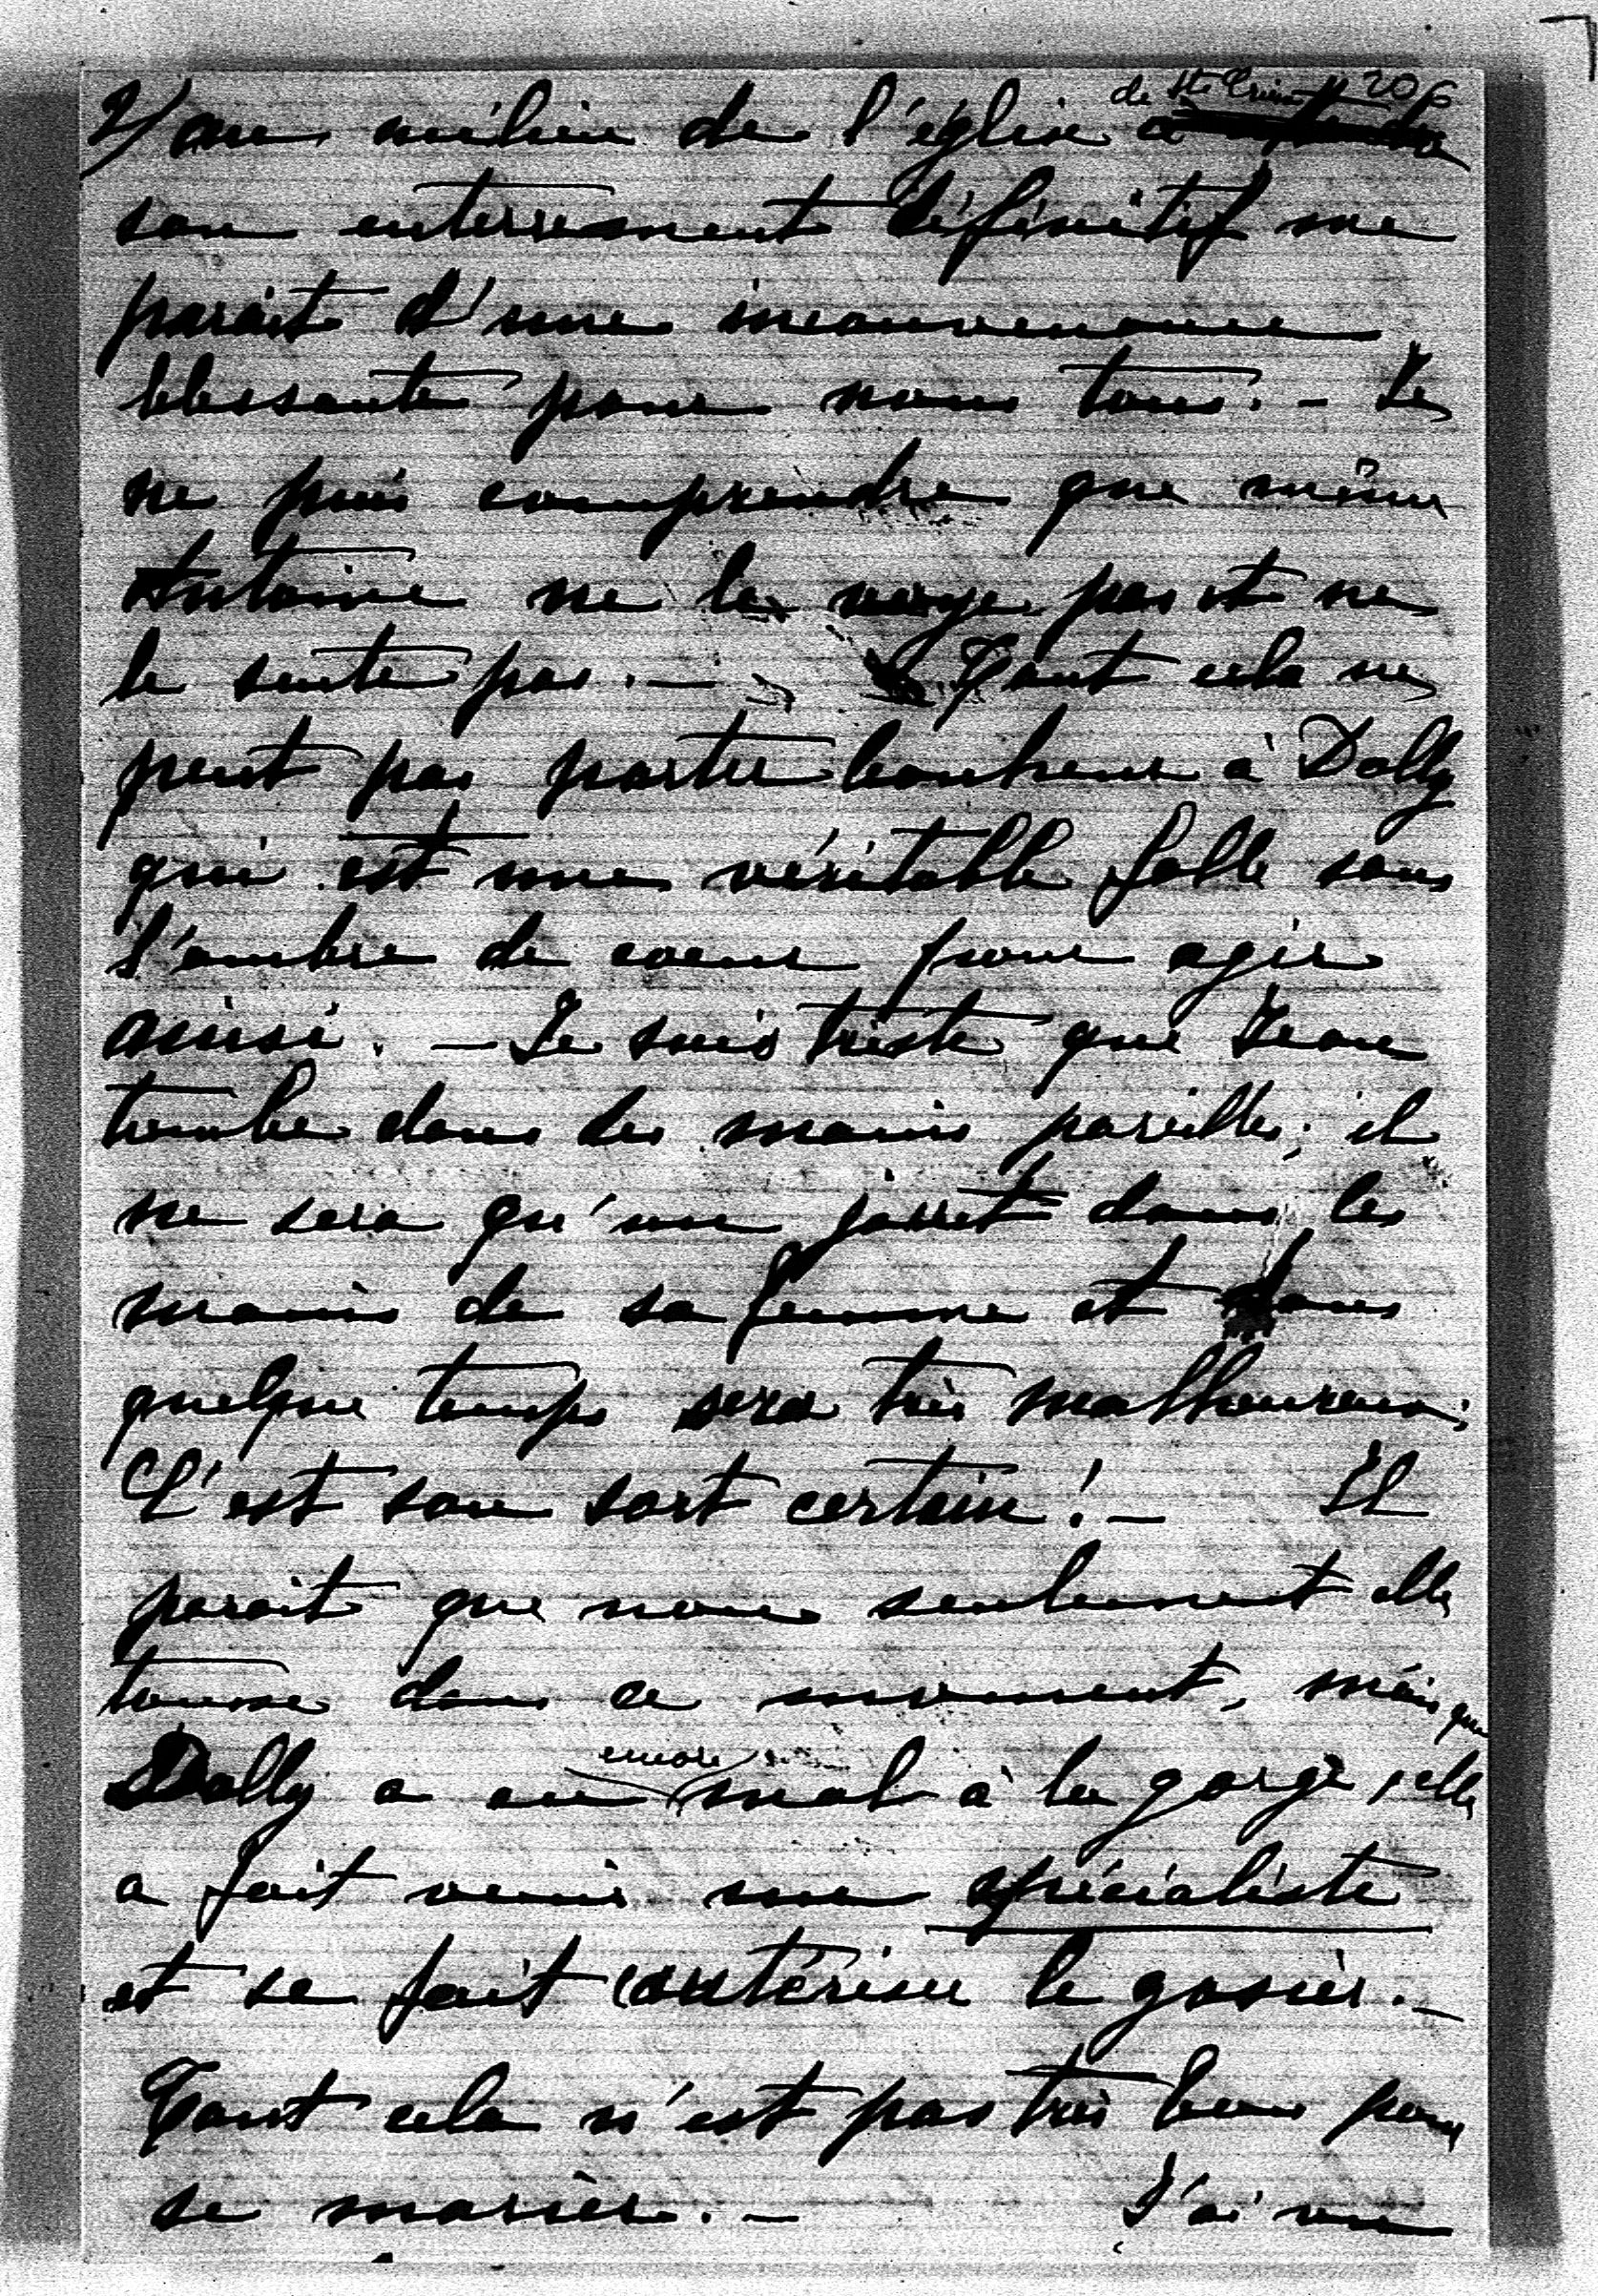 206
de Ste Croix
2/ au milieu de l'église
son enterrement définitif me
parait d'une inconvenance
blessante pour nous tous. - Je
ne puis comprendre que même
Antoine ne le voye pas et ne
le sente pas. - Tout cela ne
peut pas porter bonheur à Dolly
qui est une véritable folle sans
l'ombre de coeur pour agir
ainsi. - Je suis triste que Jean
tombe dans des mains pareilles; il
ne sera qu'un jouet dans les
mains de sa femme et dans
quelque temps sera très malheureux;
C'est son sort certain! - Il
parait que non seulement elle
tousse dans ce moment, mais que
Dolly a eu encore mal à la gorge, elle
a fait venir une spécialiste
et se fait cautériser le gosier. -
Tout cela n'est pas très bon pour
se marier. - J'ai vu